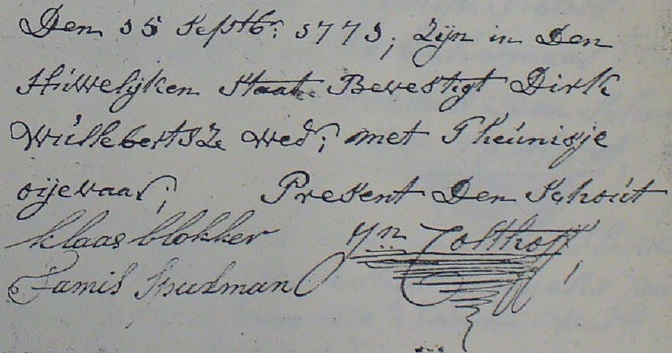 Den 15 Septbr: 1771; Zijn in Den
Húwelijken Staat Bevestigt Dirk
Wúllebertsz wed; met Theúnisje
oijevaar; Present Den Schoút
klaas blokker Jn Colthoff